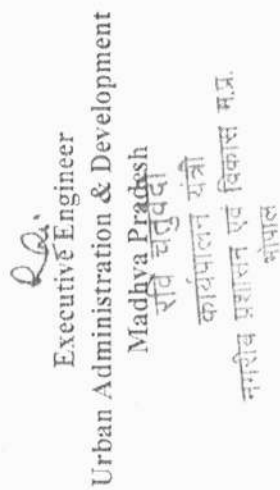 Executive Engineer
Urban Administration & Development
Madhya Pradesh
रवि चतुर्वेदी
कार्यपालन यंत्री
नगरीय प्रशासन एवं विकास म.प्र.
भोपाल